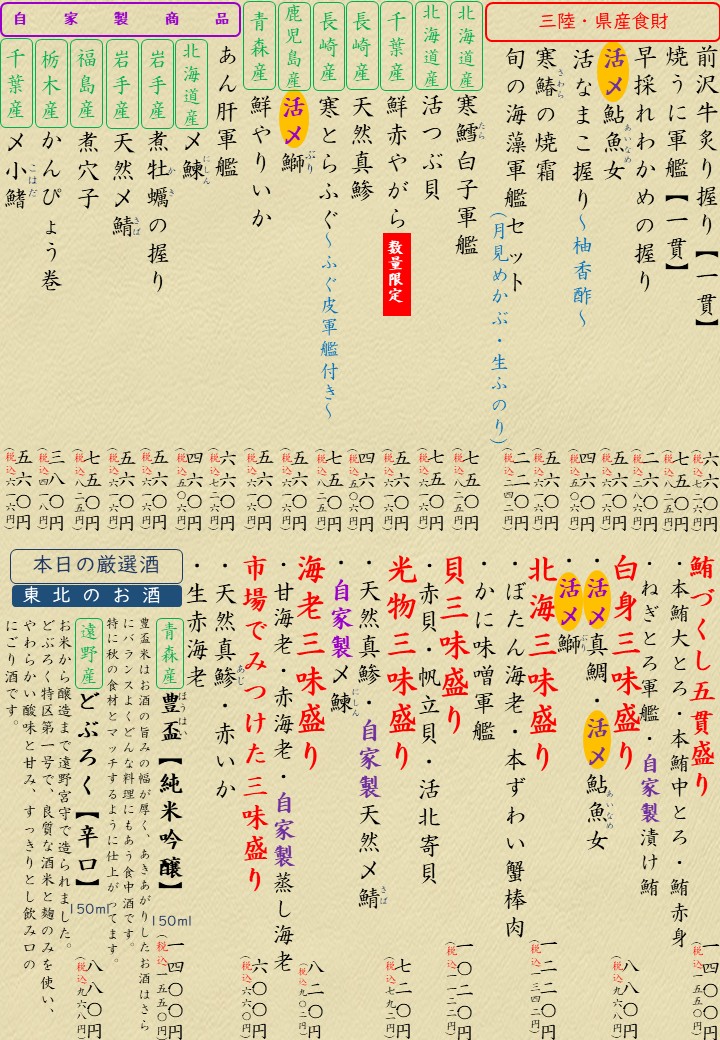 三陸・県産食財
前沢牛炙り握り【一貫】
六六〇円
(税込七二六円)
焼うに軍艦【一貫】
七五〇円
(税込八二五円)
早採れわかめの握り
二六〇円
(税込二八六円)
活〆鮎魚女
あいなめ
五六〇円
(税込六一六円)
活なまこ握り～柚香酢～
四六〇円
(税込五〇六円)
寒鰆の焼霜
さわら
五六〇円
(税込六一六円)
旬の海藻軍艦セット
(月見めかぶ・生ふのり)
二二〇円
北海道産
寒鱈白子軍艦
たら
七五〇円
(税込八二五円)
北海道産
活つぶ貝
七五〇円
千葉産
鮮赤やがら
数量限定
五六〇円
(税込六一六円)
長崎産
天然真鯵
四六〇円
(税込五〇六円)
長崎産
寒とらふぐ～ふぐ皮軍艦付き～
七五〇円
(税込八二五円)
鹿児島産
活〆鰤
ぶり
五六〇円
(税込六一六円)
青森産
鮮やりいか
五六〇円
(税込六一六円)
自家製商品
あん肝軍艦
六六〇円
(税込七二六円)
北海道産
〆鰊
にしん
四六〇円
(税込五〇六円)
岩手産
煮牡蠣の握り
かき
五六〇円
(税込六一六円)
岩手産
天然〆鯖
さば
五六〇円
(税込六一六円)
福島産
煮穴子
七五〇円
(税込八二五円)
栃木産
かんぴょう巻
三八〇円
(税込四一八円)
千葉産
〆小鰭
こはだ
五六〇円
(税込六一六円)
鮪づくし五貫盛り
一四〇〇円
・本鮪大とろ・本鮪中とろ・鮪赤身
・ねぎとろ軍艦・自家製漬け鮪
白身三味盛り
八八〇円
(税込九六八円)
・活〆真鯛・活〆鮎魚女
あいなめ
・活〆鰤
ぶり
北海三味盛り
一二二〇円
(税込一三四二円)
・ぼたん海老・本ずわい蟹棒肉
・かに味噌軍艦
貝三味盛り
一〇二〇円
(税込一一二二円)
・赤貝・帆立貝・活北寄貝
光物三味盛り
七二〇円
(税込七九二円)
・天然真鯵・自家製天然〆鯖
さば
・自家製〆鰊
にしん
海老三味盛り
八二〇円
(税込九〇二円)
・甘海老・赤海老・自家製蒸し海老
市場でみつけた三味盛り
六〇〇円
(税込六六〇円)
・天然真鯵・赤いか
あじ
・生赤海老
本日の厳選酒
東北のお酒
青森産
豊盃【純米吟醸】
ほうはい
150ml
一四〇〇円
豊盃米はお酒の旨みの幅が厚く、あきあがりしたお酒はさら
にバランスよくどんな料理にもあう食中酒です。
特に秋の食材とマッチするように仕上がってます。
遠野産
どぶろく【辛口】
150ml
八八〇円
(税込九六八円)
お米から醸造まで遠野宮守で造られました。
どぶろく特区第一号で、良質な酒米と麹のみを使い、
やわらかい酸味と甘み、すっきりとし飲み口の
にごり酒です。